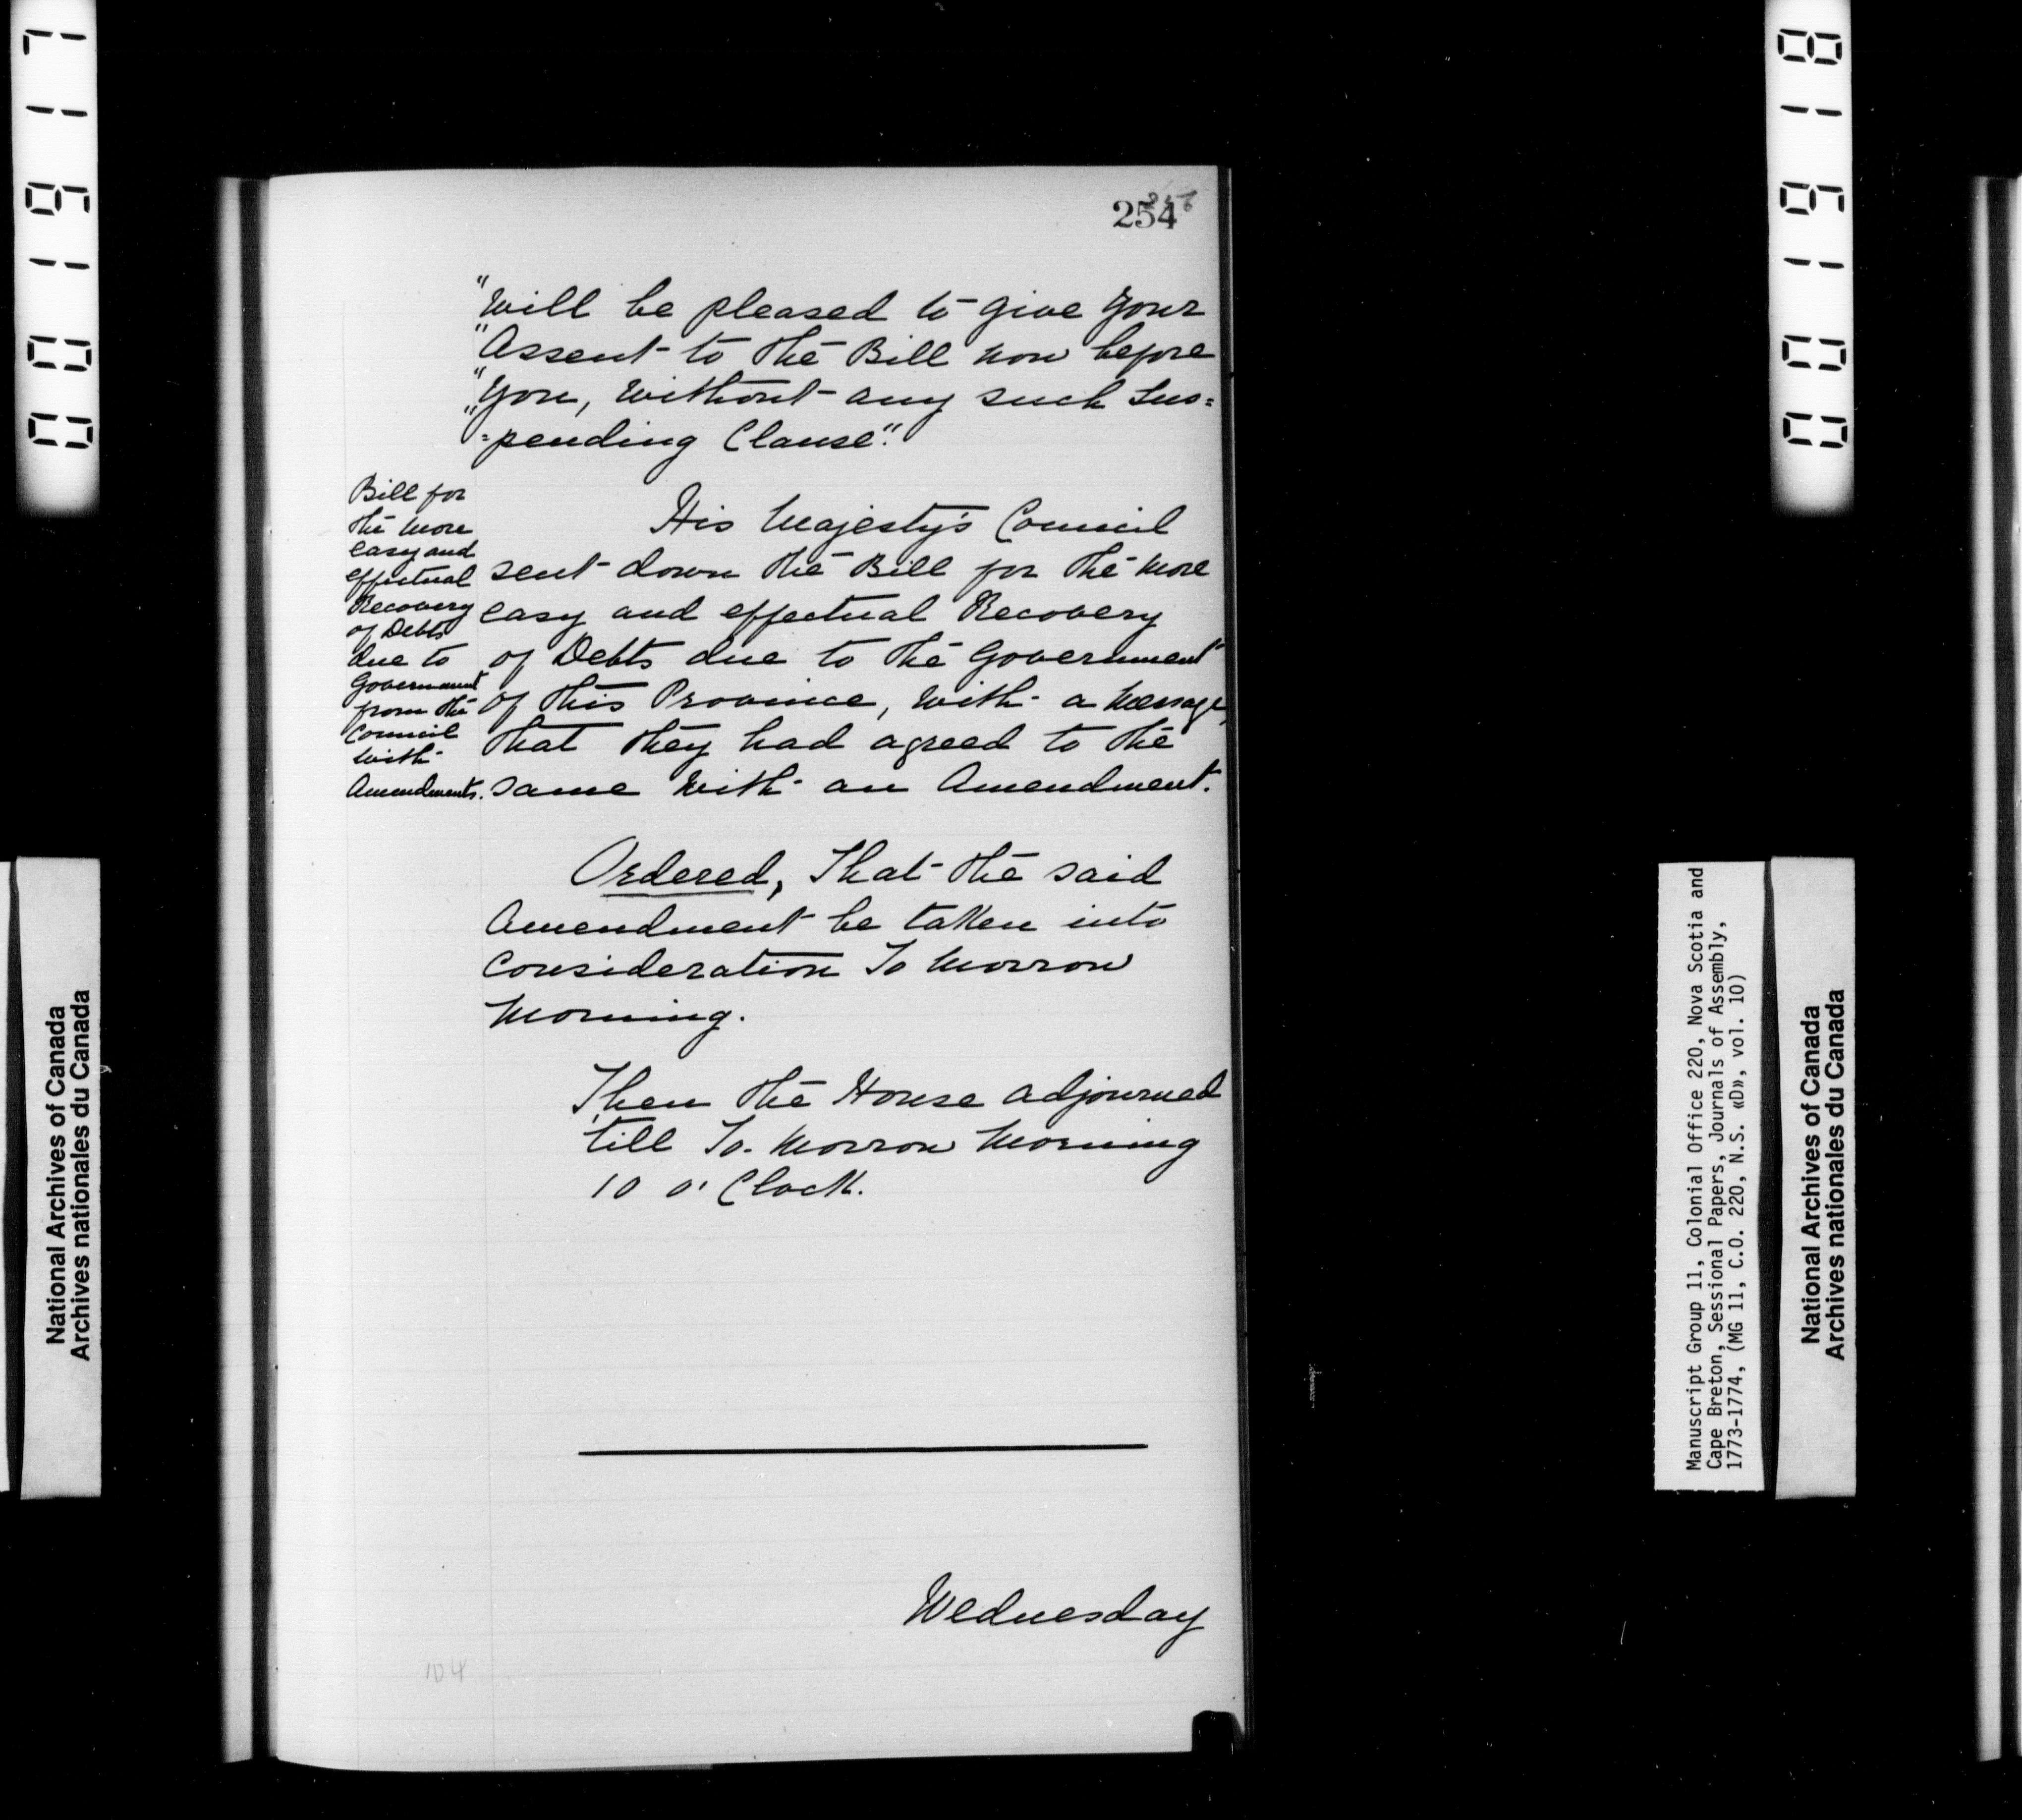 254
"Will be pleased to give Your
"Assent to the Bill now before
"You, Without any such Sus=
"=pending Clause".
Bill for
the more
easy and
effectual
Recovery
of Debts
due to
Government
from the
Council
with
Amendments.
His Majesty's Council
sent down the Bill for the more
easy and effectual Recovery
of Debts due to the Government
of this Province, With a Message,
that they had agreed to the
same With an Amendment.
Ordered, That the said
Amendment be taken into
Consideration To Morrow
Morning.
Then the House adjourned
till To-Morrow Morning
10 o'Clock.
Wednesday
104
001917
National Archives of Canada
Archives nationales du Canada
001918
Manuscript Group 11, Colonial Office 220, Nova Scotia and
Cape Breton, Sessional Papers, Journals of Assembly,
1773-1774, (MG 11, C.O. 220, N.S. «D», vol. 10)
National Archives of Canada
Archives nationales du Canada